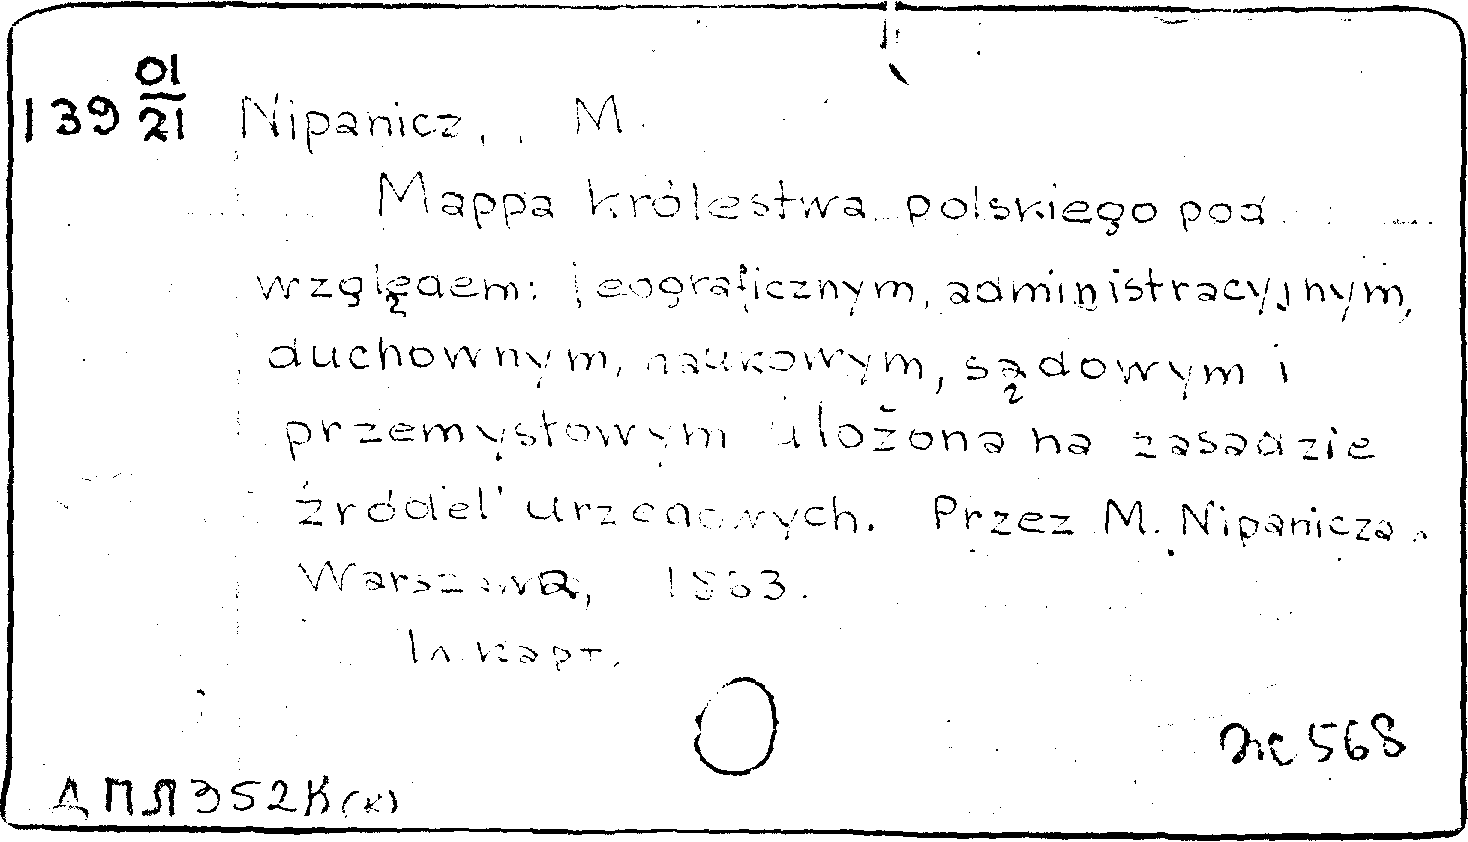 139 01/21 Nipanicz, , M.
Mappa królestwa polskiego pod
względem: jeograficznym, administracyjnym,
duchownym, naukowym, sądowym i
przemysłowym ułożona na zasadzie
źródeł urzędowych. Przez M. Nipanicza.
Warszawa, 1863.
1 л. карт.
Ж 568
ДПЛ 352К(к)